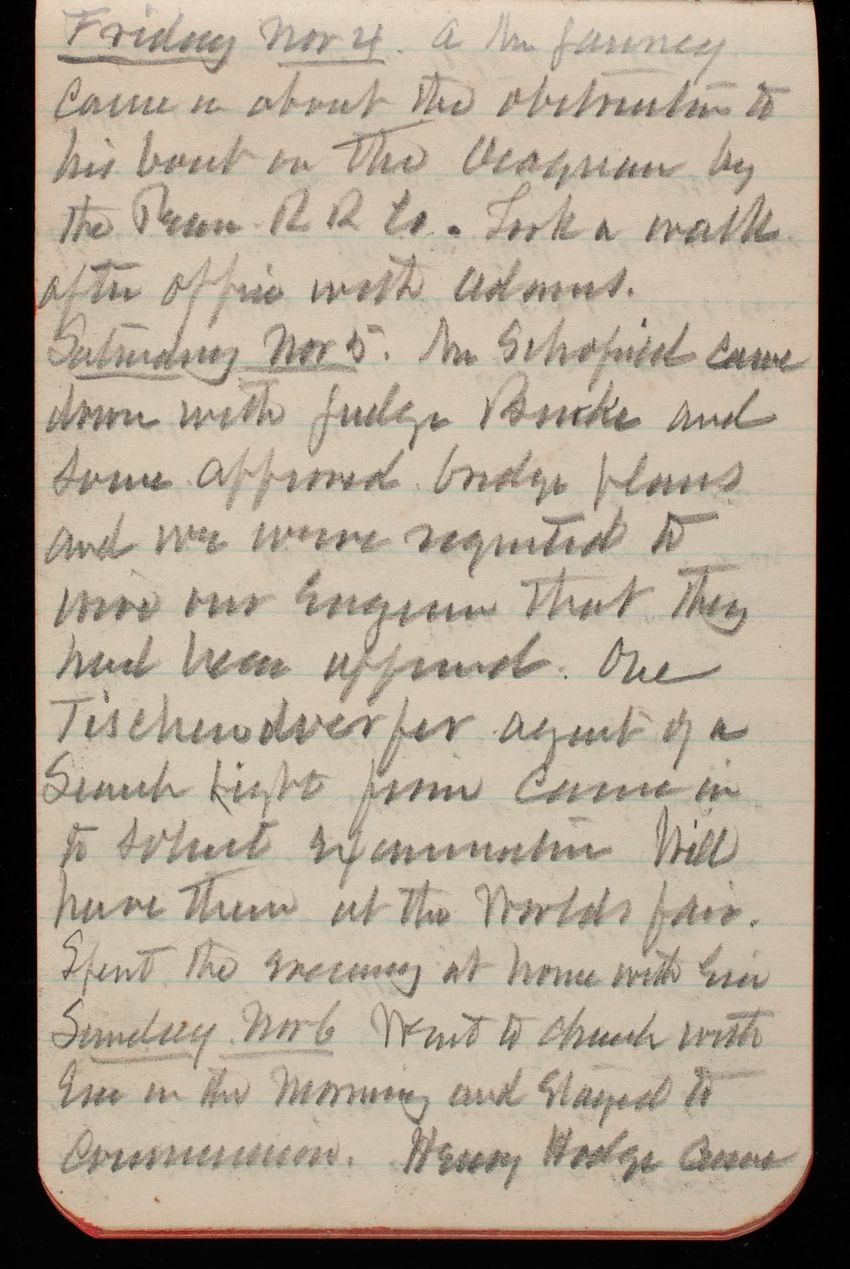 Friday Nov 4. A Mr Janney
came in about the obstruction to
his boat on the Ocoquan by
the Penn R R Co. Took a walk
after office with Adams.
Saturday Nov 5. Mr Schofield came
down with Judge Burke and
some approved bridge plans
and we were requested to
wire our Engineer that they
had been approved. One
Tischendoerfer agent of a
Search Light firm came in
to solicit examination Will
have them at the Worlds fair.
Spent the evening at home with Evie
Sunday Nov 6 Went to church with
Evie in the morning and Stayed to
Communion. Henry Hodge came